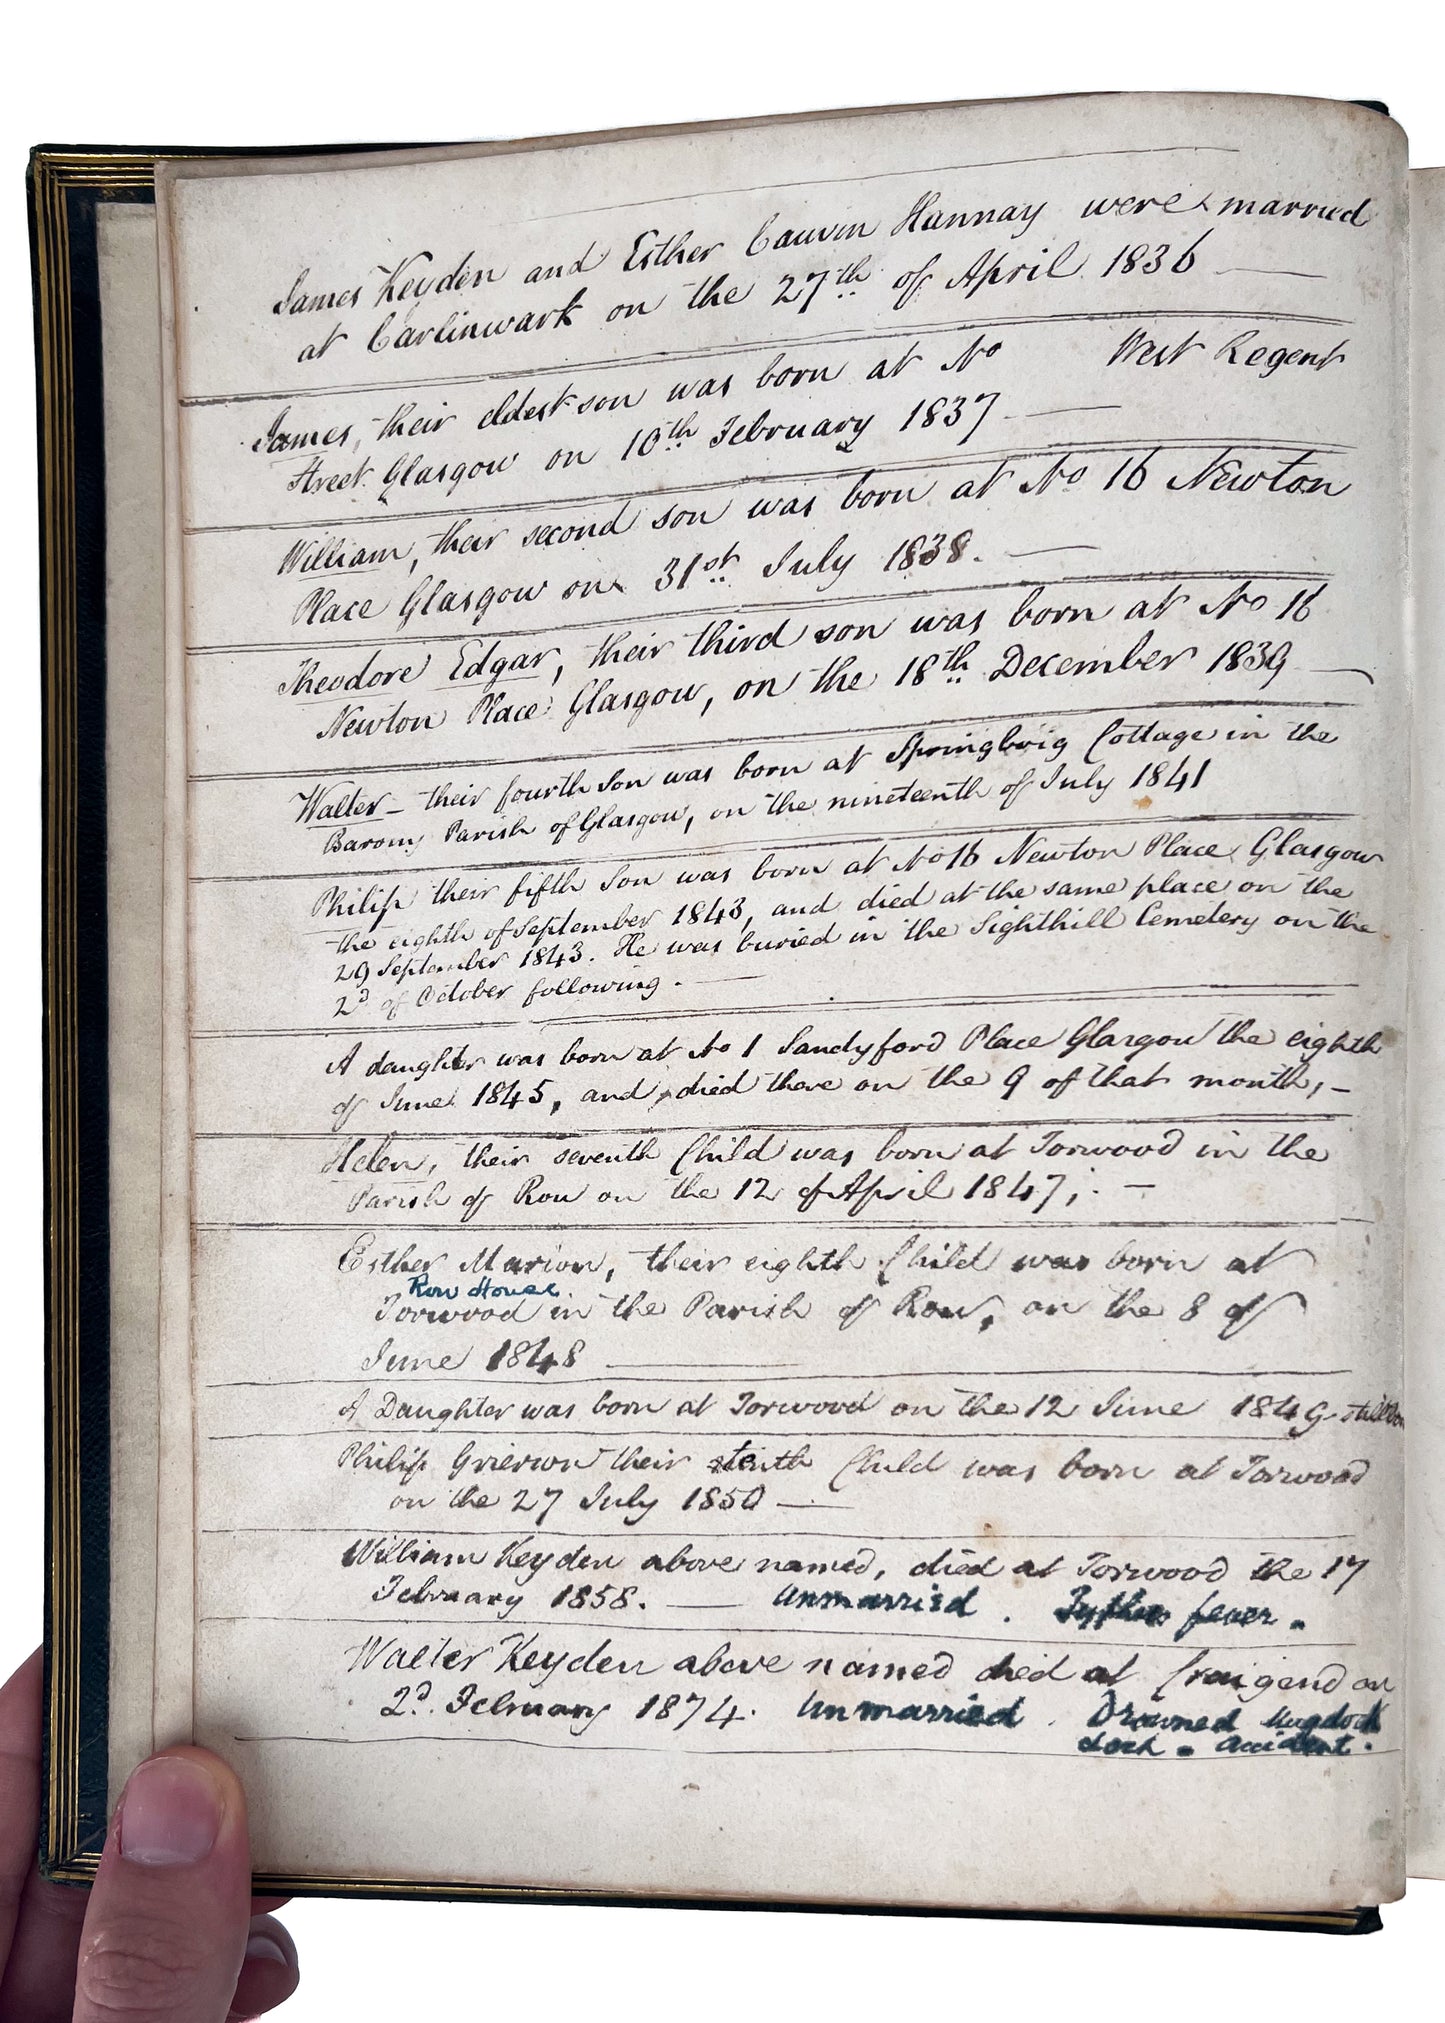 James Keyden and Esther Cauvin Hannay were married
at Carlinwark on the 27th of April 1836
James, their eldest son was born at No West Regent
Street Glasgow on 10th February 1837
William, their second son was born at No 16 Newton
Place Glasgow on 31st July 1838.
Theodore Edgar, their third son was born at No 16
Newton Place Glasgow, on the 18th December 1839
Walter - their fourth son was born at Springboig Cottage in the
Barony Parish of Glasgow, on the nineteenth of July 1841
Philip their fifth son was born at No 16 Newton Place Glasgow
the eighth of September 1843, and died at the same place on the
29 September 1843. He was buried in the Sighthill Cemetery on the
2d of October following.
A daughter was born at No 1 Sandyford Place Glasgow the eighth
of June 1845, and died there on the 9 of that month, -
Helen, their seventh Child was born at Torwood in the
Parish of Row on the 12 of April 1847,. -
Esther Marion, their eighth Child was born at
Row House
Torwood in the Parish of Row, on the 8 of
June 1848
A Daughter was born at Torwood on the 12 June 1849 - stillborn
Philip Grierson their tenth Child was born at Torwood
on the 27 July 1850
William Keyden above named, died at Torwood the 17
February 1858. Unmarried. Typhus fever.
Walter Keyden above named died at Craigend on
2d. February 1874. Unmarried. Drowned Mugdock
Loch - accident.